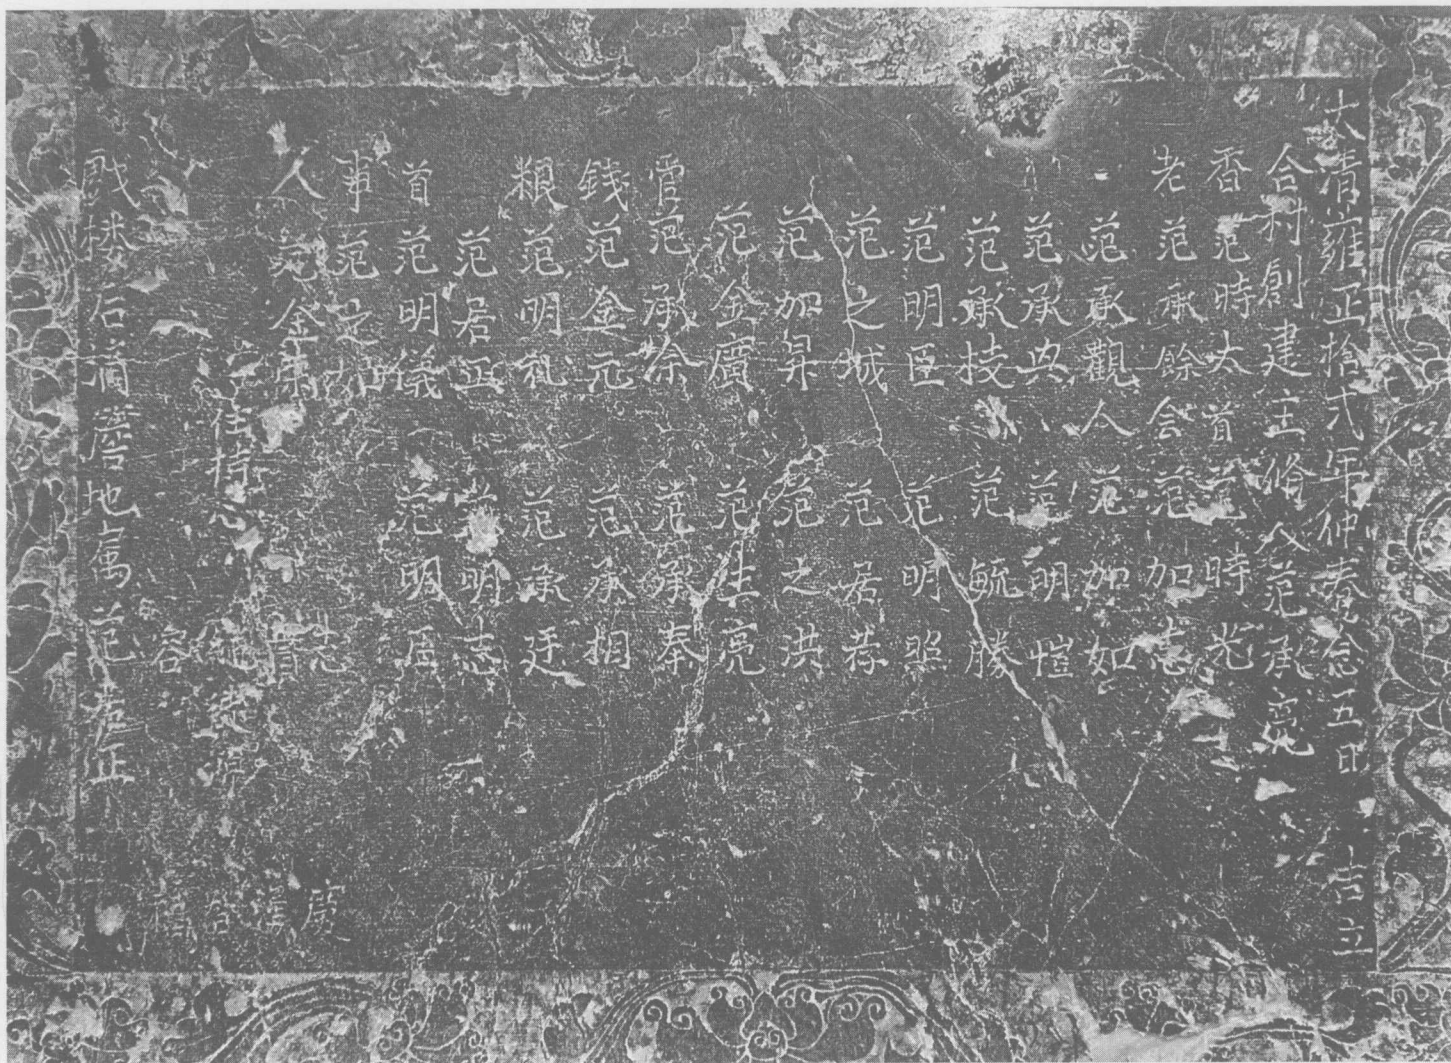 大清雍正拾弍年仲春念五日吉立
合村創建主脩人范承寬
香范時太首范時光
老范承餘會范加志
范承觀人范加如
范承典范明愷
范承技范毓勝
范明臣范明照
范之城范君荐
范加昇范之洪
范金廣范生亮
管范承余范承奉
錢范金元范承相
粮范明礼范承廷
范君正明志
首范明儀范明
事范之
人范金
住持心
容
戲楼石滴簷地属范君正